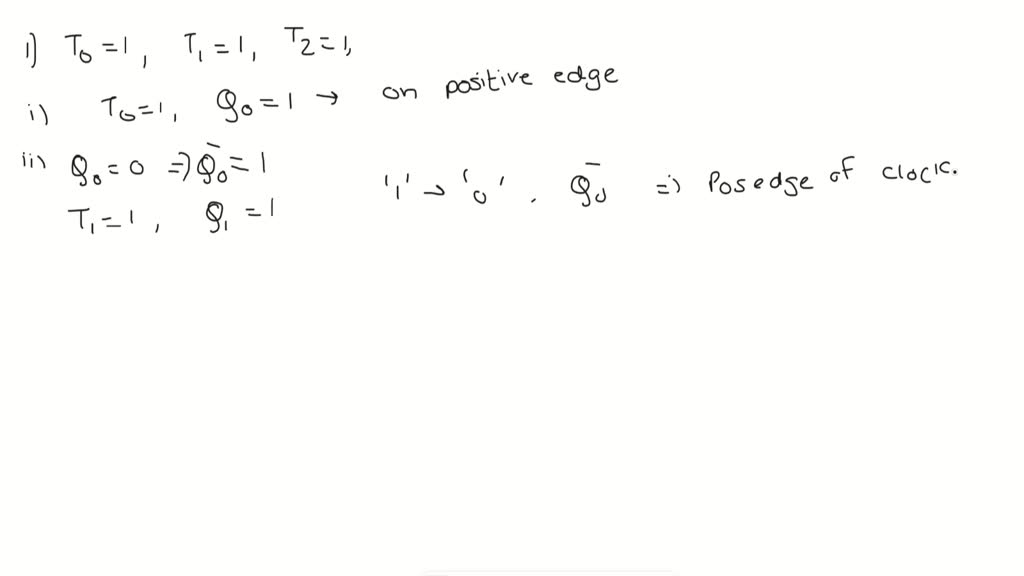 1) T₀ = 1, T₁ = 1, T₂ = 1,
i) T₀ = 1, Q₀ = 1 → on positive edge
ii) Q₀ = 0 ⇒ Q̄₀ = 1
'1' → '0' . Q̄₀ ⇒ Pos edge of clock.
T₁ = 1, Q₁ = 1